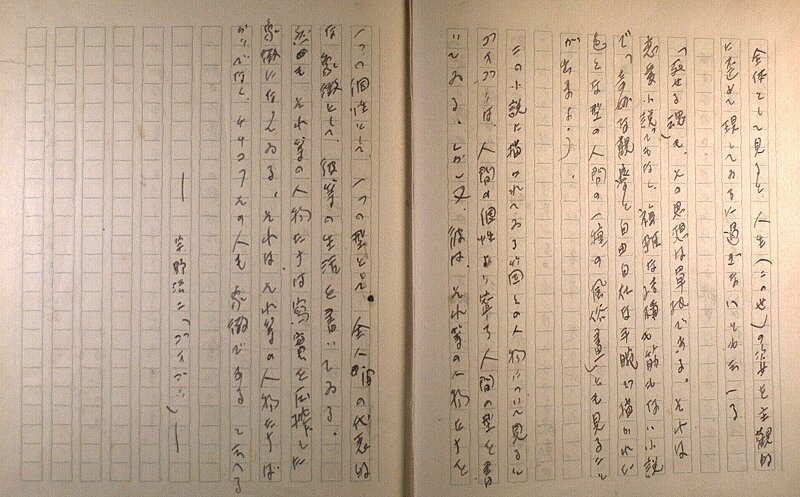 全体として見ると、人生(この世)の姿を主観的
に歪めて現してゐるに過ぎないとも云へる
「死せる魂」は、その思想は単純である。それは
恋愛小説でもなし、複雑な 筋もない小説
で、奇妙な観察と自由自在な手腕で描かれた
色々な型の人間の一種の風俗画とも見ること
が出来よう。
この小説に描かれてゐる箇々の人物について見ると
ゴオゴリは、人間の個性より寧ろ人間の型を書
いてゐる。しかし又 彼は、それ等の人物たちを
一つの個性として、一つの型として、全人類の代表的
な象徴として、彼等の生活を書いてゐる。
然も それ等の人物たちは写実を圧搾した
象徴になつてゐる。それはそれ等の人物たちば
かりでなく、チチコフその人も象徴である と云へる
― 宇野浩二「ゴオゴリ」―